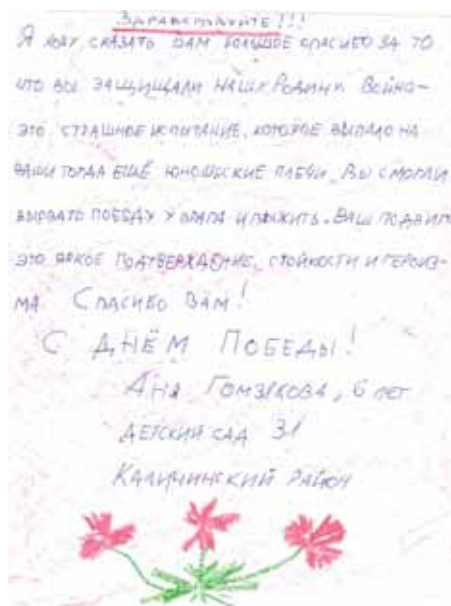 Здравствуйте!!!
Я хочу сказать вам большое спасибо за то
что вы защищали нашу Родину. Война-
это страшное испытание, которое выпало на
ваши тогда ещё юношеские плечи. Вы смогли
вырвать победу у врага и выжить. Ваш подвиг
это яркое подтверждение, стойкости и героиз-
ма. Спасибо вам!
С днём Победы!
Аня Гомзякова, 6 лет
Детский сад 31
Калининский район